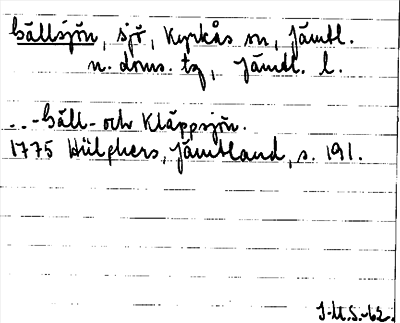 Gällsjön, sjö, Kyrkås sn, Jämtl.
n. doms. tg, Jämtl. l.
...Gäll- och Kläppsjön.
1775 Hülphers, Jämtland, s. 191.
J.M.S.-62.